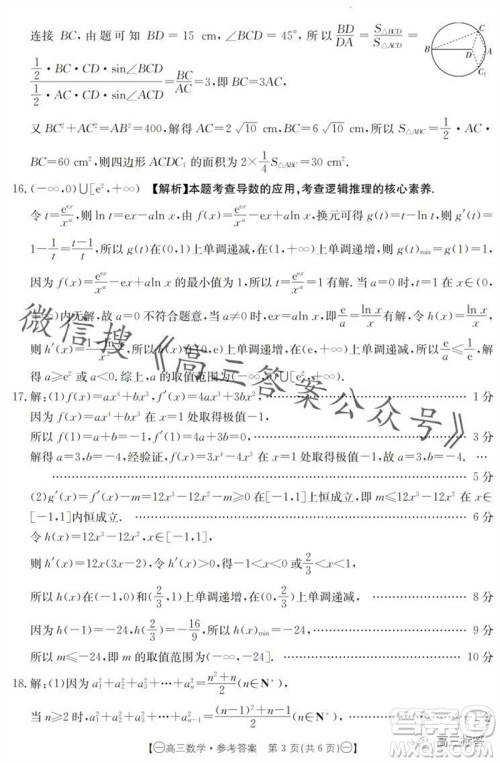 连接 BC,由题可知 BD=15 cm,∠BCD=45°,所以 BD/DA = S△BCD/S△ACD =
(1/2·BC·CD·sin∠BCD)/(1/2·AC·CD·sin∠ACD) = BC/AC = 3,即 BC=3AC.
又 BC²+AC²=AB²=400,解得 AC=2√10 cm,BC=6√10 cm,所以 S△ABC= ·
AC·BC=60 cm²,则四边形 ACDC₁ 的面积为 2×1/4 S△ABC=30 cm².
16.(-∞,0)∪[e²,+∞) 【解析】本题考查导数的应用,考查逻辑推理的核心素养.
令 t=e^(ex)/x^a,则 ln t=ex-aln x,所以 f(x)=t-ln t.令 g(t)=t-ln t,则 g′(t)=
1-1/t=(t-1)/t,所以 g(t)在(0,1)上单调递减,在(1,+∞)上单调递增,所以 g(t)min=g(1)=1.
因为 f(x)=e^(ex)/x^a-ex+aln x 的最小值为 1,所以 t=e^(ex)/x^a=1 有解.当 a=0 时,e^(ex)=1 在
(0,+∞)内无解,故 a=0 不符合题意,当 a≠0 时,ex=aln x 有解,即 e/a=ln x/x 有解.令 h(x)=ln x/x,
则 h′(x)=(1-ln x)/x²,所以 h(x)在(0,e)上单调递增,在(e,+∞)上单调递减,所以 e/a≤1/e,解
得 a≥e² 或 a<0.综上,a 的取值范围是(-∞,0)∪[e²,+∞).
17.解:(1)f(x)=ax⁴+bx³,则 f′(x)=4ax³+3bx². 1分
因为 f(x)=ax⁴+bx³ 在 x=1 处取得极值-1,
所以 f(1)=a+b=-1,f′(1)=4a+3b=0. 3分
解得 a=3,b=-4,经验证,f(x)=3x⁴-4x³ 在 x=1 处取得极值-1,故 a=3,b=-4.
5分
(2)g′(x)=f′(x)-m=12x³-12x²-m≥0 在[-1,1]内恒成立,即 m≤12x³-12x² 在[-1,
1]内恒成立. 6分
令 h(x)=12x³-12x²,x∈[-1,1],
则 h′(x)=12x(3x-2),令 h′(x)>0,得-1<x<0 或 2/3<x<1,令 h′(x)<0,得 0<x<2/3,
所以 h(x)在(-1,0)和(2/3,1)上单调递增,在(0,2/3)上单调递减. 8分
因为 h(-1)=-24,h(2/3)=-16/9>-24,所以 h(x)min=-24. 9分
所以 m≤-24,即 m 的取值范围为(-∞,-24]. 10分
18.解:(1)因为 a₁²+a₂²+a₃²+…+aₙ²=(n²+n)/2(n∈N*),
所以 a₁²+a₂²+a₃²+…+aₙ₋₁²=((n-1)²+n-1)/2(n≥2,n∈N*),
高三数学·参考答案 第 3 页(共 6 页)
微信搜《高三答案公众号》
高三标答